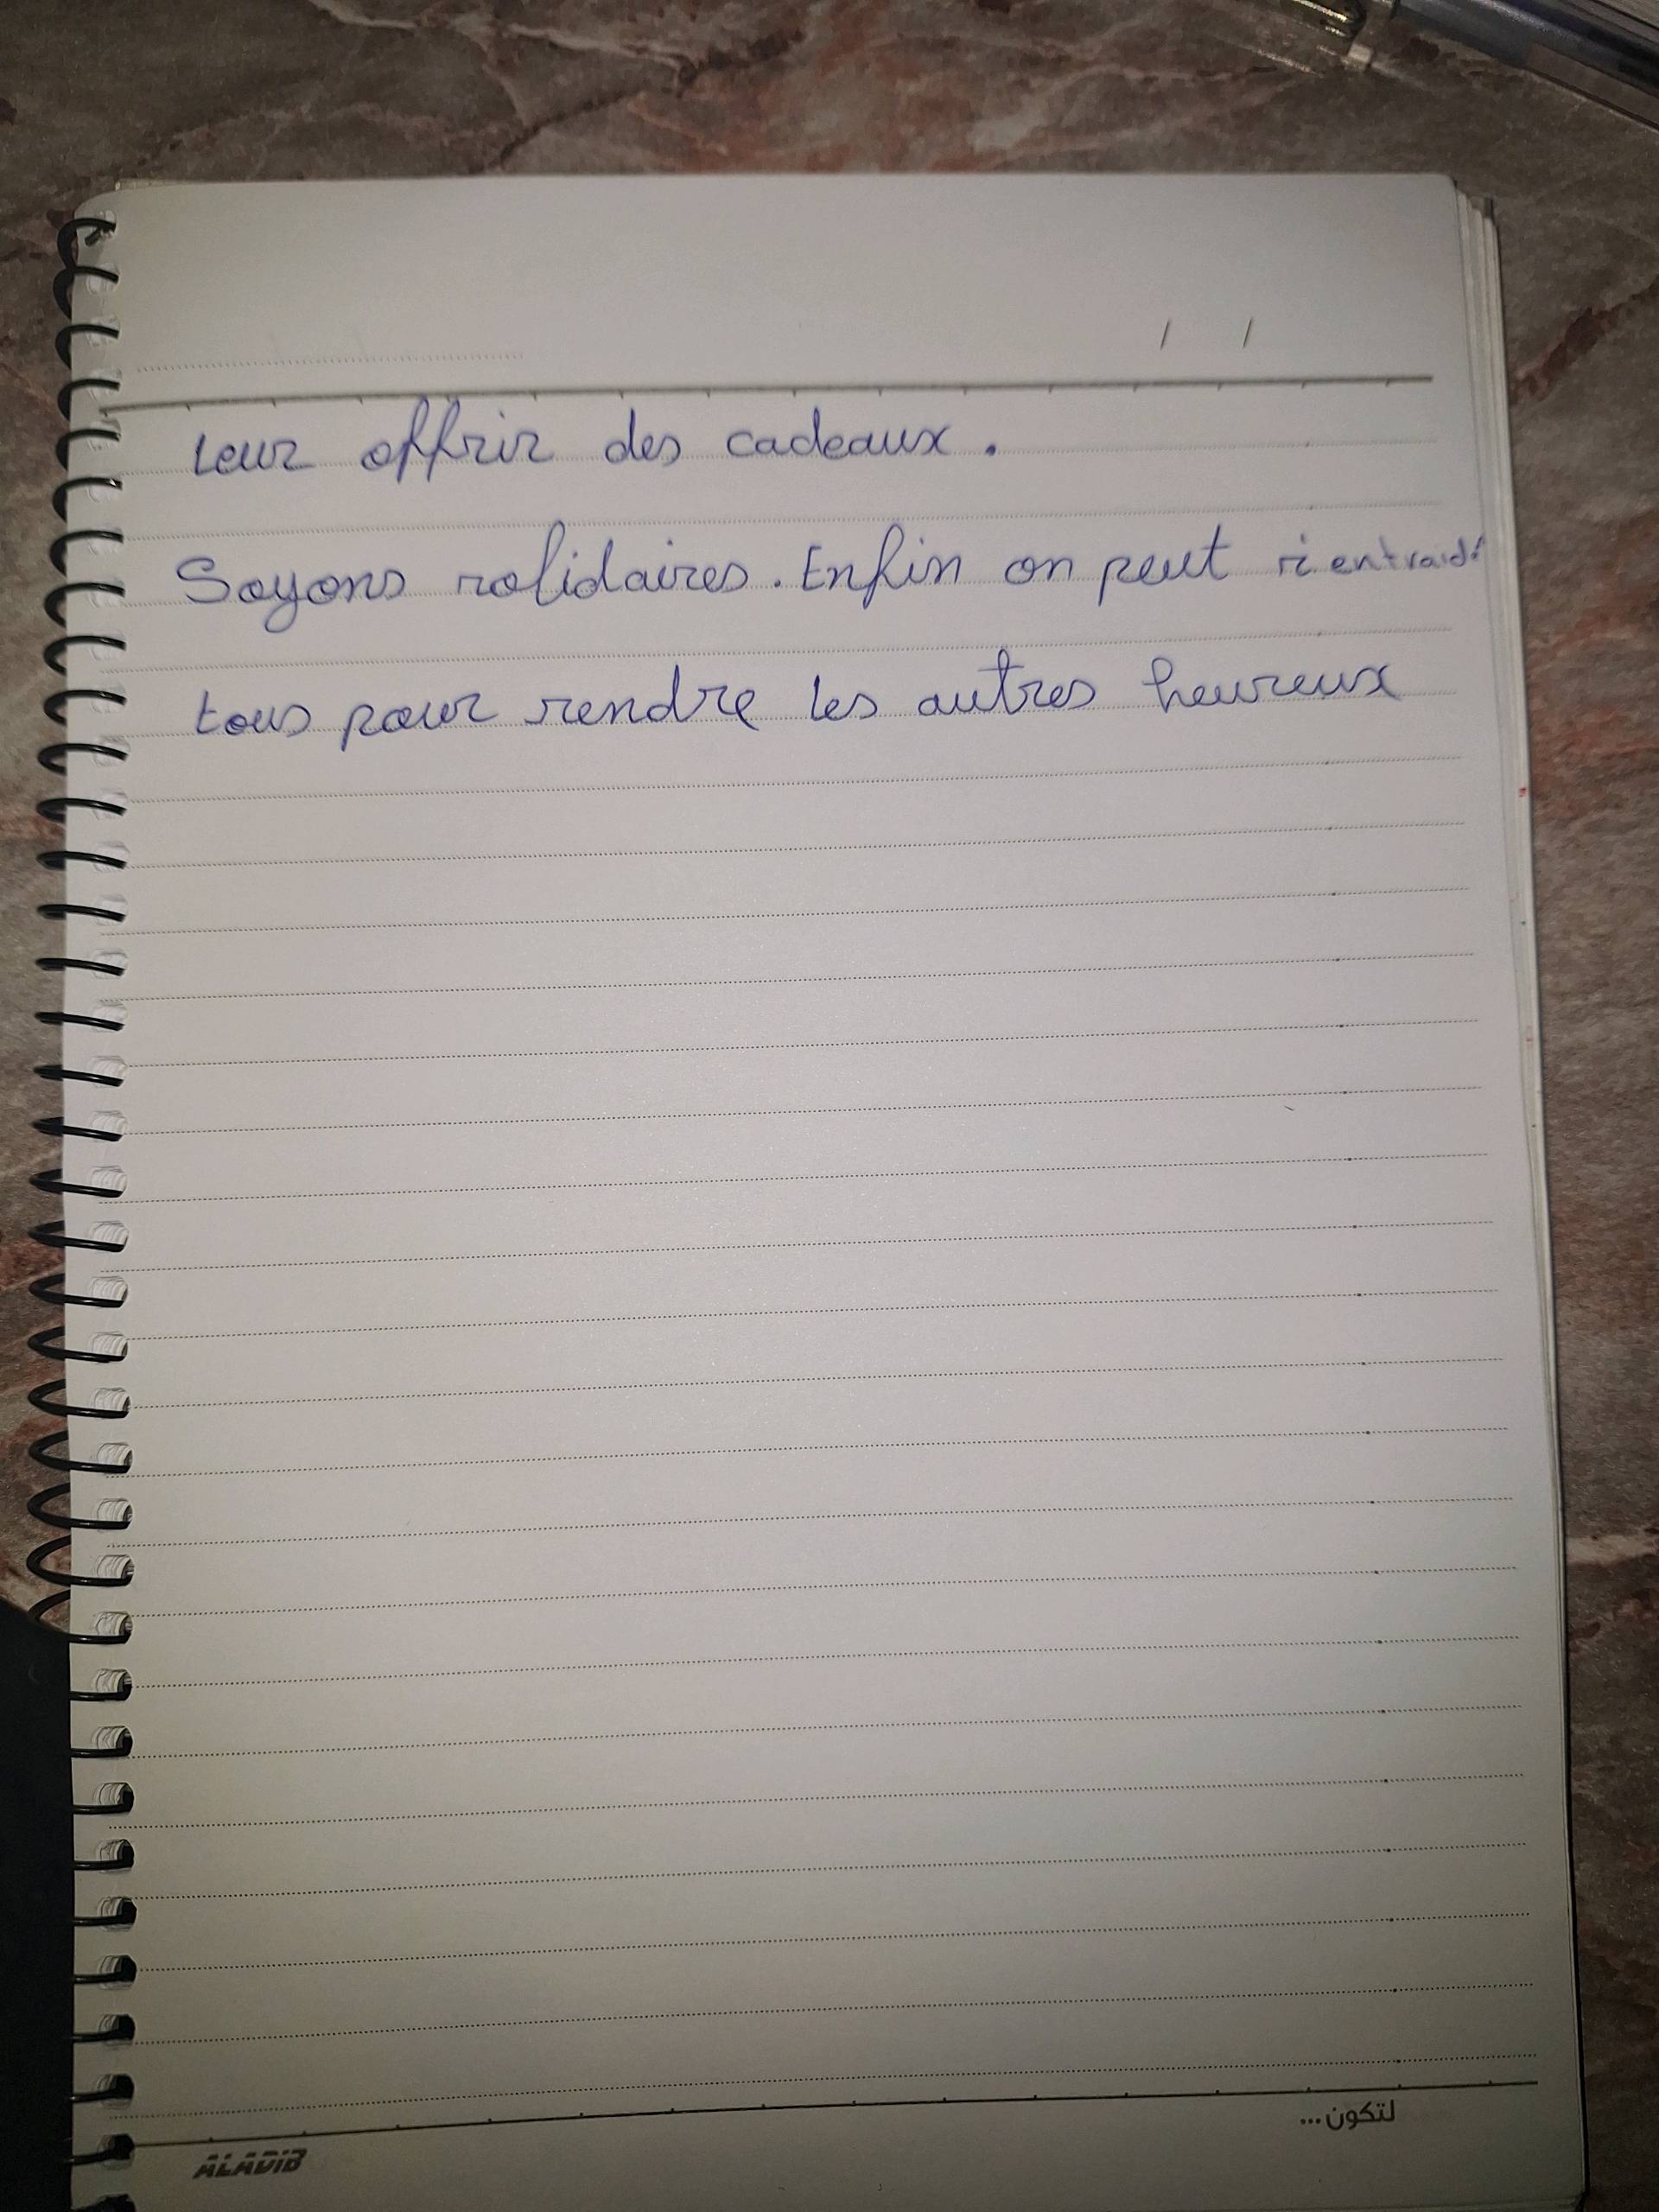 / /
leur offrir des cadeaux.
Soyons solidaires. Enfin on peut s'entraid
tous pour rendre les autres heureux
ALADIB
لتكون...